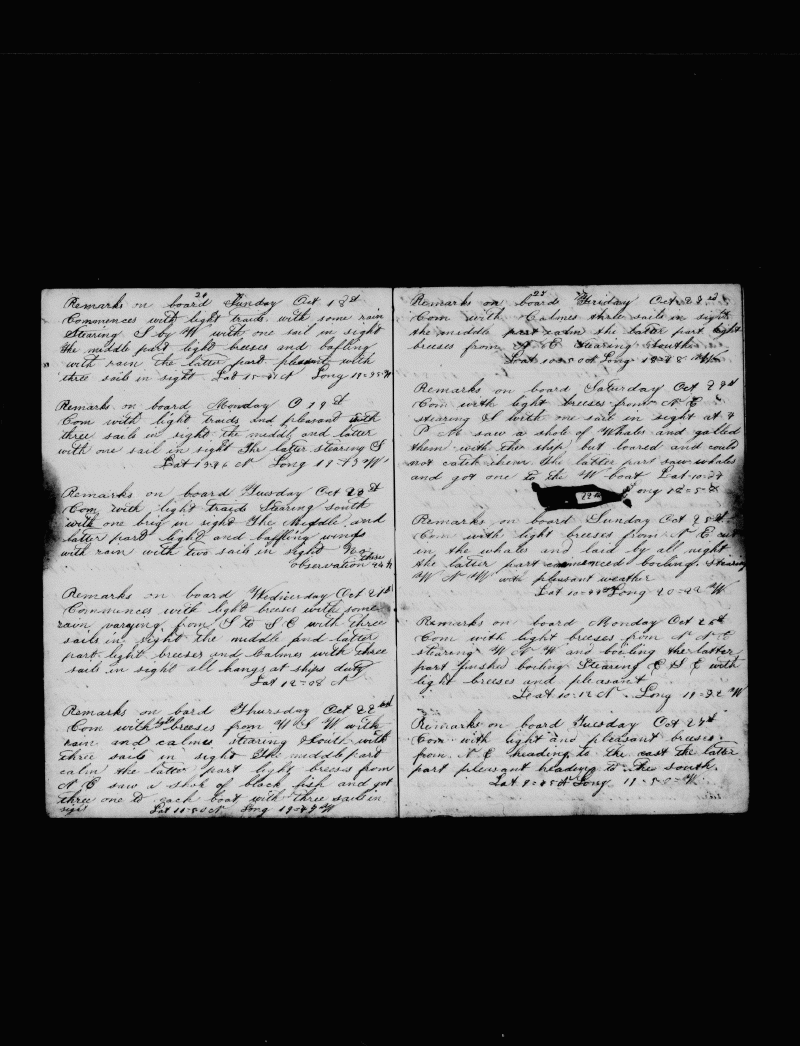 24
Remarks on board Sunday Oct 18st
Commences with light traids with some rain
Stearing S by W with one sail in sight
the middle part light breeses and bafling
with rain the latter part pleasent with
three sails in sight Lat 15= N Long 19=35 W
Remarks on board Monday O 19st
Com with light traids and pleasant with
three sails in sight the meddel and latter
with one sail in sight The latter stearing S
Lat 13 N Long 19=43 W
Remarks on board Tuesday Oct 20st
Com with light traids Stearing south
with one brig in sight The Middle and
latter part light and baffling winds
with rain with two sails in sight No
observation these 24 h
Remarks on board Wednesday Oct 21st
Commences with light breeses with some
rain varying from S to S E with three
sails in sight the middle and latter
part light breeses and Calmes with three
sails in sight all hangs at ships duty
Lat 12=08 N
Remarks on bard Thursday Oct 22
Com with light breeses from W S W with
rain and calmes stearing South with
three sails in sight The middle part
calm the latter part light breeses from
N E saw a shok of black fish and got
three one to each boat with three sails in
sight Lat 11=50 N Long 19=49 W
25
Remarks on board Friday Oct 23
Com with Calmes three sails in sight
the middle part calm the latter part light
breeses from N E Stearing South
Lat 10=50 N Long 19=48 W
Remarks on board Saturday Oct 24st
Com with light breeses from N E
stearing S with one sail in sight at 4
P M saw a shole of Whales and galled
them with the ship but loared and could
not catch them the latter part saw whales
and got one to the W boat Lat 10=27
Long 18=58
Remarks on board Sunday Oct 25st
Com with light breeses from N E cut
in the whales and laid by all night
the latter part commenced boiling. stearing
W N W with pleasant weather
Lat 10= Long 20=22 W
Remarks on board Monday Oct 26st
Com with light breeses from N N E
stearing W N W and boiling the latter
part finshed boiling Stearing E S E with
light breeses and pleasant
Leat 10=12 N. Long 19=22 W
Remarks on board Tuesday Oct 27st
Com with light and pleasant breeses
from N E heading to the east the latter
part pleasant heading to the south.
Lat 9=45 N Long 19=50= W.